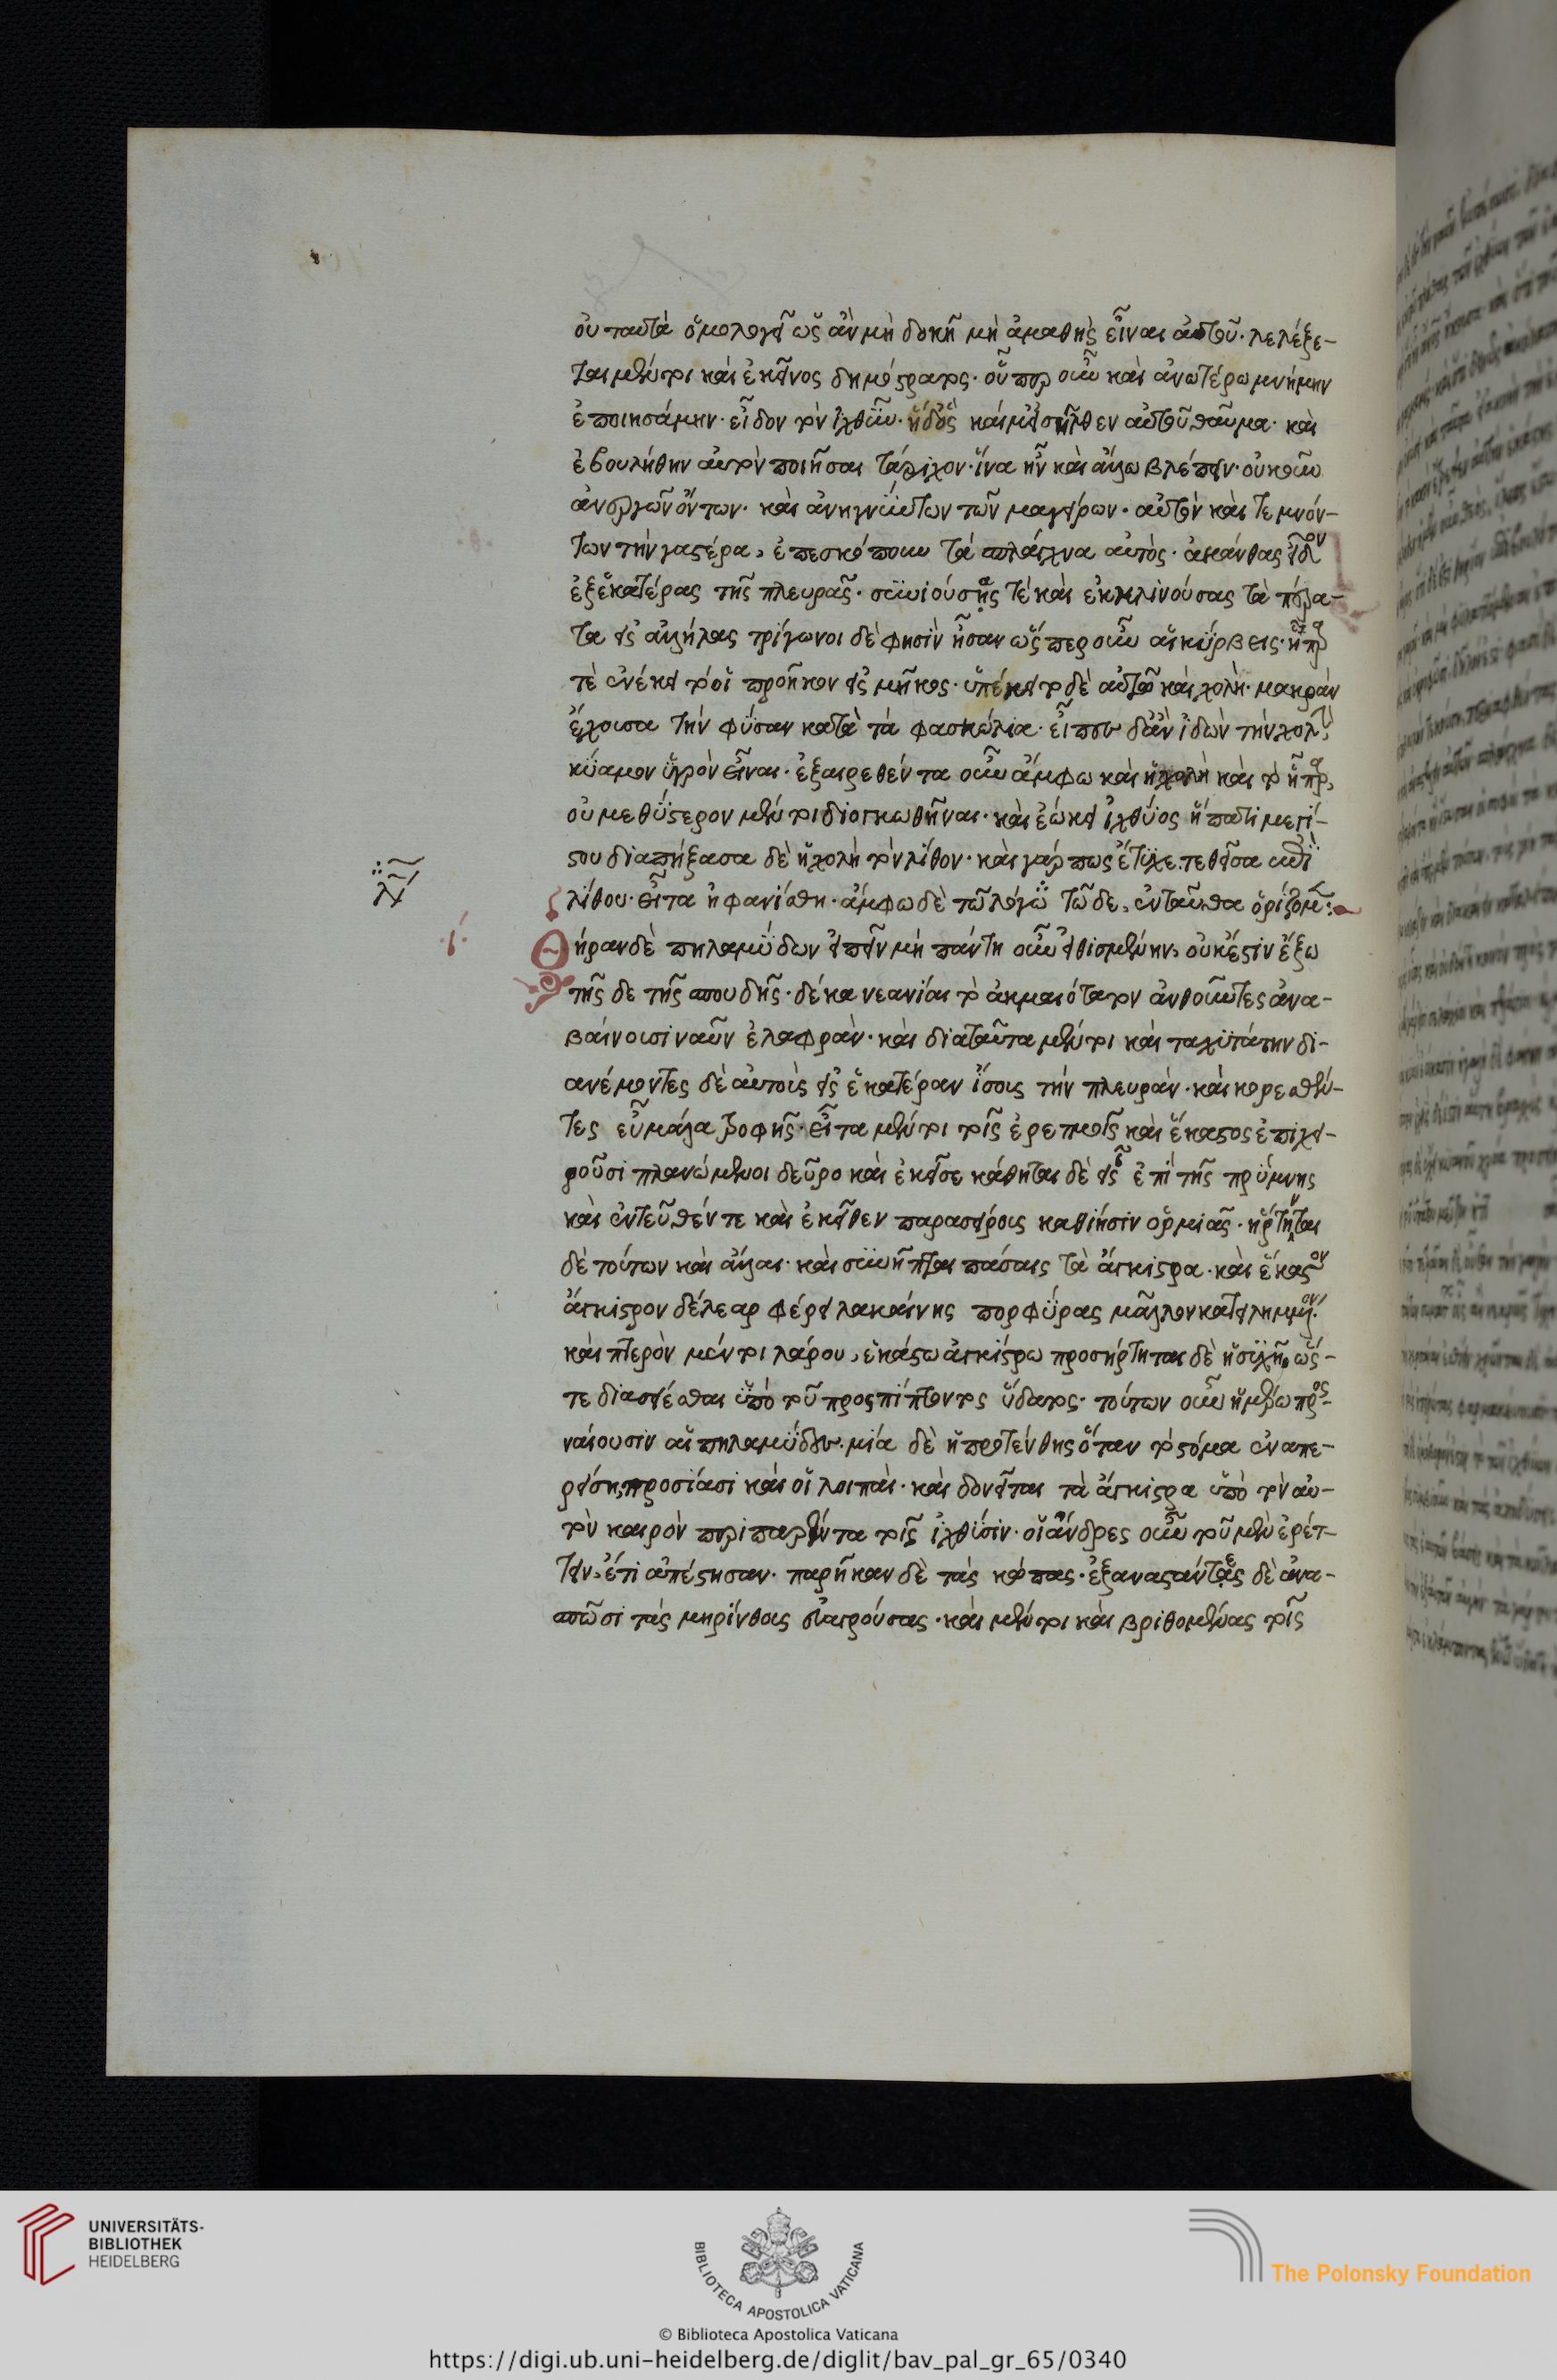 οὐ ταυτὰ ὁμολογεῖ ὡς ἀν μὴ δοκῆ μὴ ἀμαθὴς εἶναι αὐτοῦ· λελέξε-
ται μέντοι καὶ ἐκεῖνος δημόστρατος· οὗπερ οὖν καὶ ἀνωτέρω μνήμην
ἐποιησάμην· εἶδον τὸν ἰχθῦν· ἦ δ' ὃς καί μ' εἰσῆλθεν αὐτοῦ θαῦμα· καὶ
ἐβουλήθην αὐτὸν ποιῆσαι τάριχον· ἵνα ἦν καὶ ἄλλω βλέπειν· οὐκοῦν
ἀνεργῶν ὄντων· καὶ ἀνηγνϋόντων τῶν μαγείρων· αὐτὸν καὶ τεμνόν-
των τὴν γαστέρα, ἐπεσκόπουν τὰ σπλάγχνα αὐτὸς· ἀκάνθας εἶδον
ἐξ ἑκατέρας τῆς πλευρᾶς· συνιούσας τὲ καὶ ἐκκλινούσας τὰ πέρα-
τα εἰς ἀλλήλας τρίγωνοι δὲ φησὶν ἦσαν ὥσπερ οὖν αἱ κύρβεις· ἧπαρ
τὲ ἐνέκειτό οἱ προῆκον εἰς μῆκος· ὑπέκειτο δὲ αὐτῶ καὶ χολὴ· μακρὰν
ἔχουσα τὴν φύσαν κατὰ τὰ φασκώλια· εἶπες δ' ἀν ἰδὼν τὴν χολὴν,
κύαμον ὑγρὸν εἶναι· ἐξαιρεθέντα οὖν ἄμφω καὶ ἡ χολὴ καὶ τὸ ἧπαρ,
οὐ μεθύστερον μέντοι διογκωθῆναι· καὶ ἐώκει ἰχθύος ἥπατι μεγί-
στου διαπήξασα δὲ ἡ χολὴ τὸν λίθον· καὶ γάρ πως ἔτυχε τεθεῖσα ἐπὶ
λίθου· εἶτα ἠφανίσθη· ἄμφω δὲ τῶ λόγω τῶδε, ἐνταῦθα ὁρίζομεν:
·ι·
Θήραν δὲ πηλαμύδων εἰπεῖν μὴ πάντη οὖν εἰθισμένην, οὐκ ἔστιν ἔξω
τῆς δε τῆς σπουδῆς· δέκα νεανίαι τὸ ἀκμαιότατον ἀνθοῦντες ἀνα-
βαίνουσι ναῦν ἐλαφρὰν· καὶ διαταῦτα μέντοι καὶ ταχυτάτην δι-
ανέμοντες δὲ αὐτοὺς εἰς ἑκατέραν ἴσοις τὴν πλευρὰν· καὶ κορεσθέν-
τες εὖ μάλα τροφῆς· εἶτα μέντοι τοῖς ἐρετμοῖς καὶ ἕκαστος ἐπιχει-
ροῦσι πλανώμενοι δεῦρο καὶ ἐκεῖσε κάθηται δὲ εἷς ἐπὶ τῆς πρύμνης
καὶ ἐντεῦθέν τε καὶ ἐκεῖθεν παρασείροις καθιήσιν ὁρμιᾶς· ἤρτηται
δὲ τούτων καὶ ἄλλαι· καὶ συνῆπται πάσαις τὰ ἄγκιστρα· καὶ ἕκαστον
ἄγκιστρον δέλεαρ φέρει λακαίνης πορφύρας μᾶλλον κατειλημμένον·
καὶ πτερὸν μέντοι λάρου, ἑκάστω ἀγκίστρω προσήρτηται δὲ ἡσυχῆ, ὥσ-
τε διασείεσθαι ὑπὸ τοῦ προσπίπτοντος ὕδατος· τούτων οὖν ἡμέρω προσ-
νάουσιν αἱ πηλαμύδες· μία δὲ ἡ προτένθης ὅταν τὸ στόμα ἐναπε-
ρείση, προσίασι καὶ οἱ λοιπαὶ· καὶ δονεῖται τὰ ἄγκιστρα ὑπὸ τὸν αὐ-
τὸν καιρὸν περιπαρέντα τοῖς ἰχθύσιν· οἱ ἄνδρες οὖν τοῦ μὲν ἐρέτ-
τειν, ἔτι ἀπέστησαν· παρῆκαν δὲ τὰς κώπας· ἐξαναστάντες δὲ ἀνα-
σπῶσι τὰς μηρίνθους εὐαγρούσας· καὶ μέντοι καὶ βριθομένας τοῖς
UNIVERSITÄTS-
BIBLIOTHEK
HEIDELBERG
BIBLIOTECA APOSTOLICA VATICANA
The Polonsky Foundation
© Biblioteca Apostolica Vaticana
https://digi.ub.uni-heidelberg.de/diglit/bav_pal_gr_65/0340